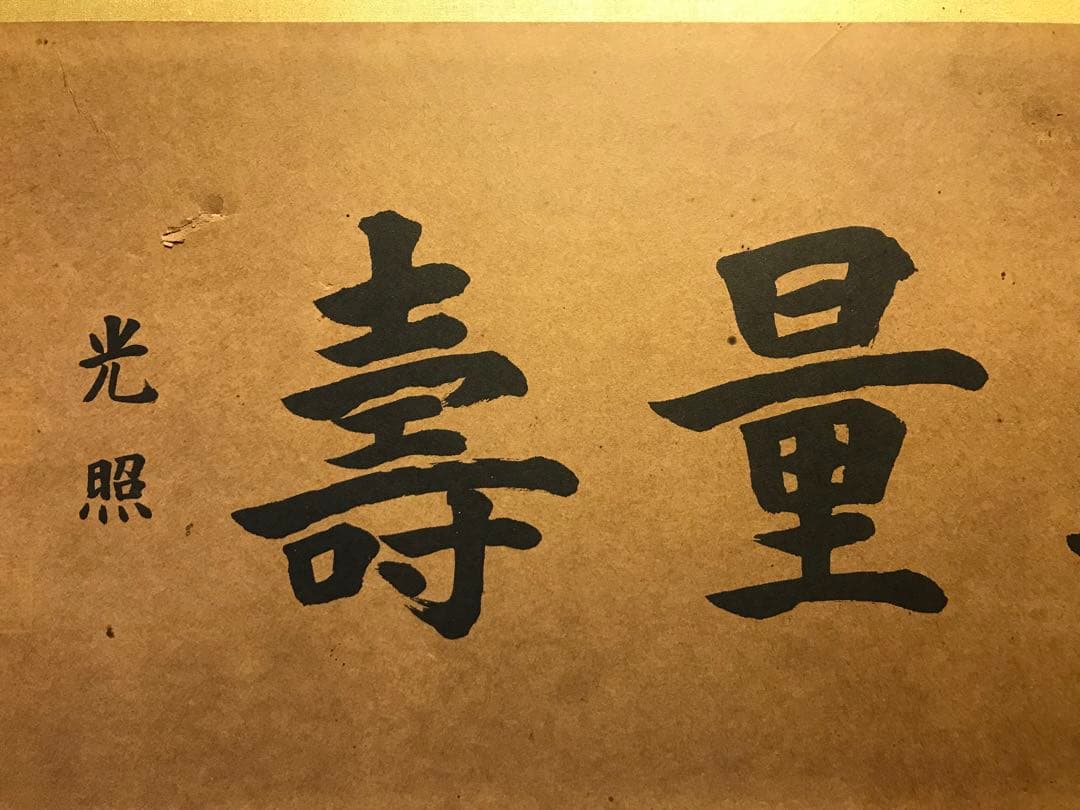 量壽
光照